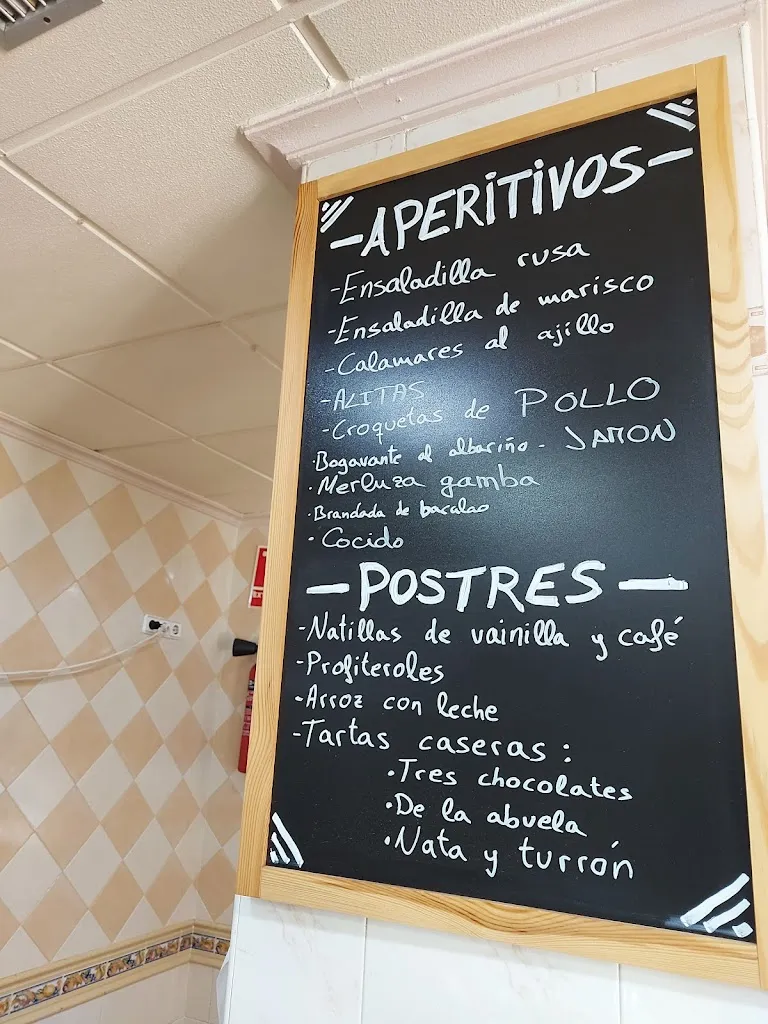 -APERITIVOS-
-Ensaladilla rusa
-Ensaladilla de marisco
-Calamares al ajillo
-ALITAS
-Croquetas de POLLO
·Bogavante al albariño - JAMON
·Merluza gamba
·Brandada de bacalao
·Cocido
-POSTRES-
-Natillas de vainilla y café
-Profiteroles
-Arroz con leche
-Tartas caseras:
·Tres chocolates
·De la abuela
·Nata y turrón